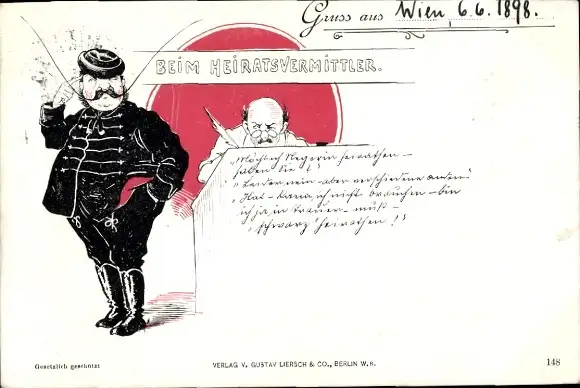 Gruss aus Wien 6.6.1898.
BEIM HEIRATSVERMITTLER.
„Möcht' ich Negerin heirathen –
haben Sie?"
„Leider nein – aber verschiedene andere"
„Ha! – kann ich nicht brauchen – bin
ich ja in Trauer – muß –
„schwarz" heirathen!"
Gesetzlich geschützt
VERLAG V. GUSTAV LIERSCH & CO., BERLIN W.
148